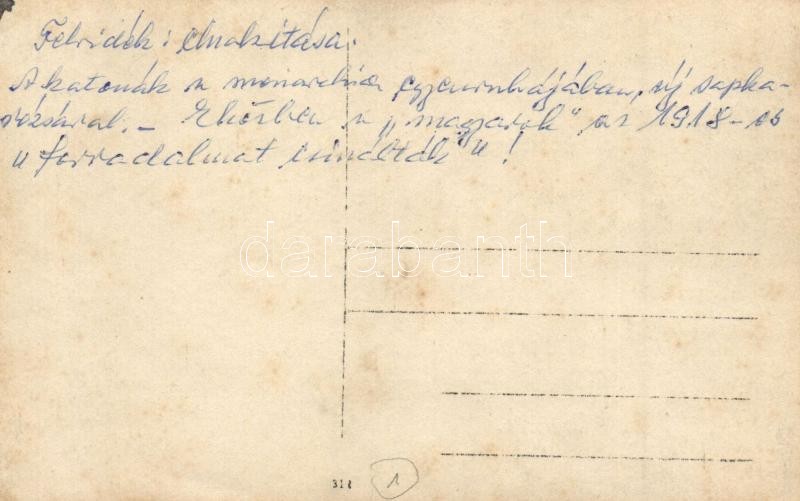 Felvidék: elszakítása.
A katonák a monarchia egyenruhájában, új sapka-
rózsával. – Eközben a „magyarok" az 1918-as
„forradalmat csinálták"!
darabanth
312
1